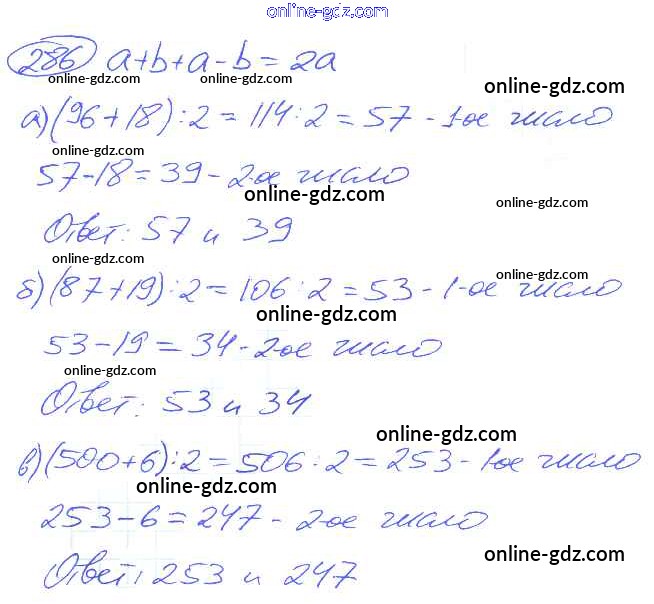 online-gdz.com
286 a+b+a-b=2a
online-gdz.com online-gdz.com online-gdz.com
а) (96+18):2=114:2=57-1-ое число
online-gdz.com
57-18=39-2-ое число
online-gdz.com online-gdz.com
Ответ: 57 и 39
online-gdz.com online-gdz.com
б) (87+19):2=106:2=53-1-ое число
online-gdz.com
53-19=34-2-ое число
online-gdz.com
Ответ: 53 и 34
online-gdz.com
в) (500+6):2=506:2=253-1-ое число
online-gdz.com
253-6=247-2-ое число
online-gdz.com
Ответ: 253 и 247